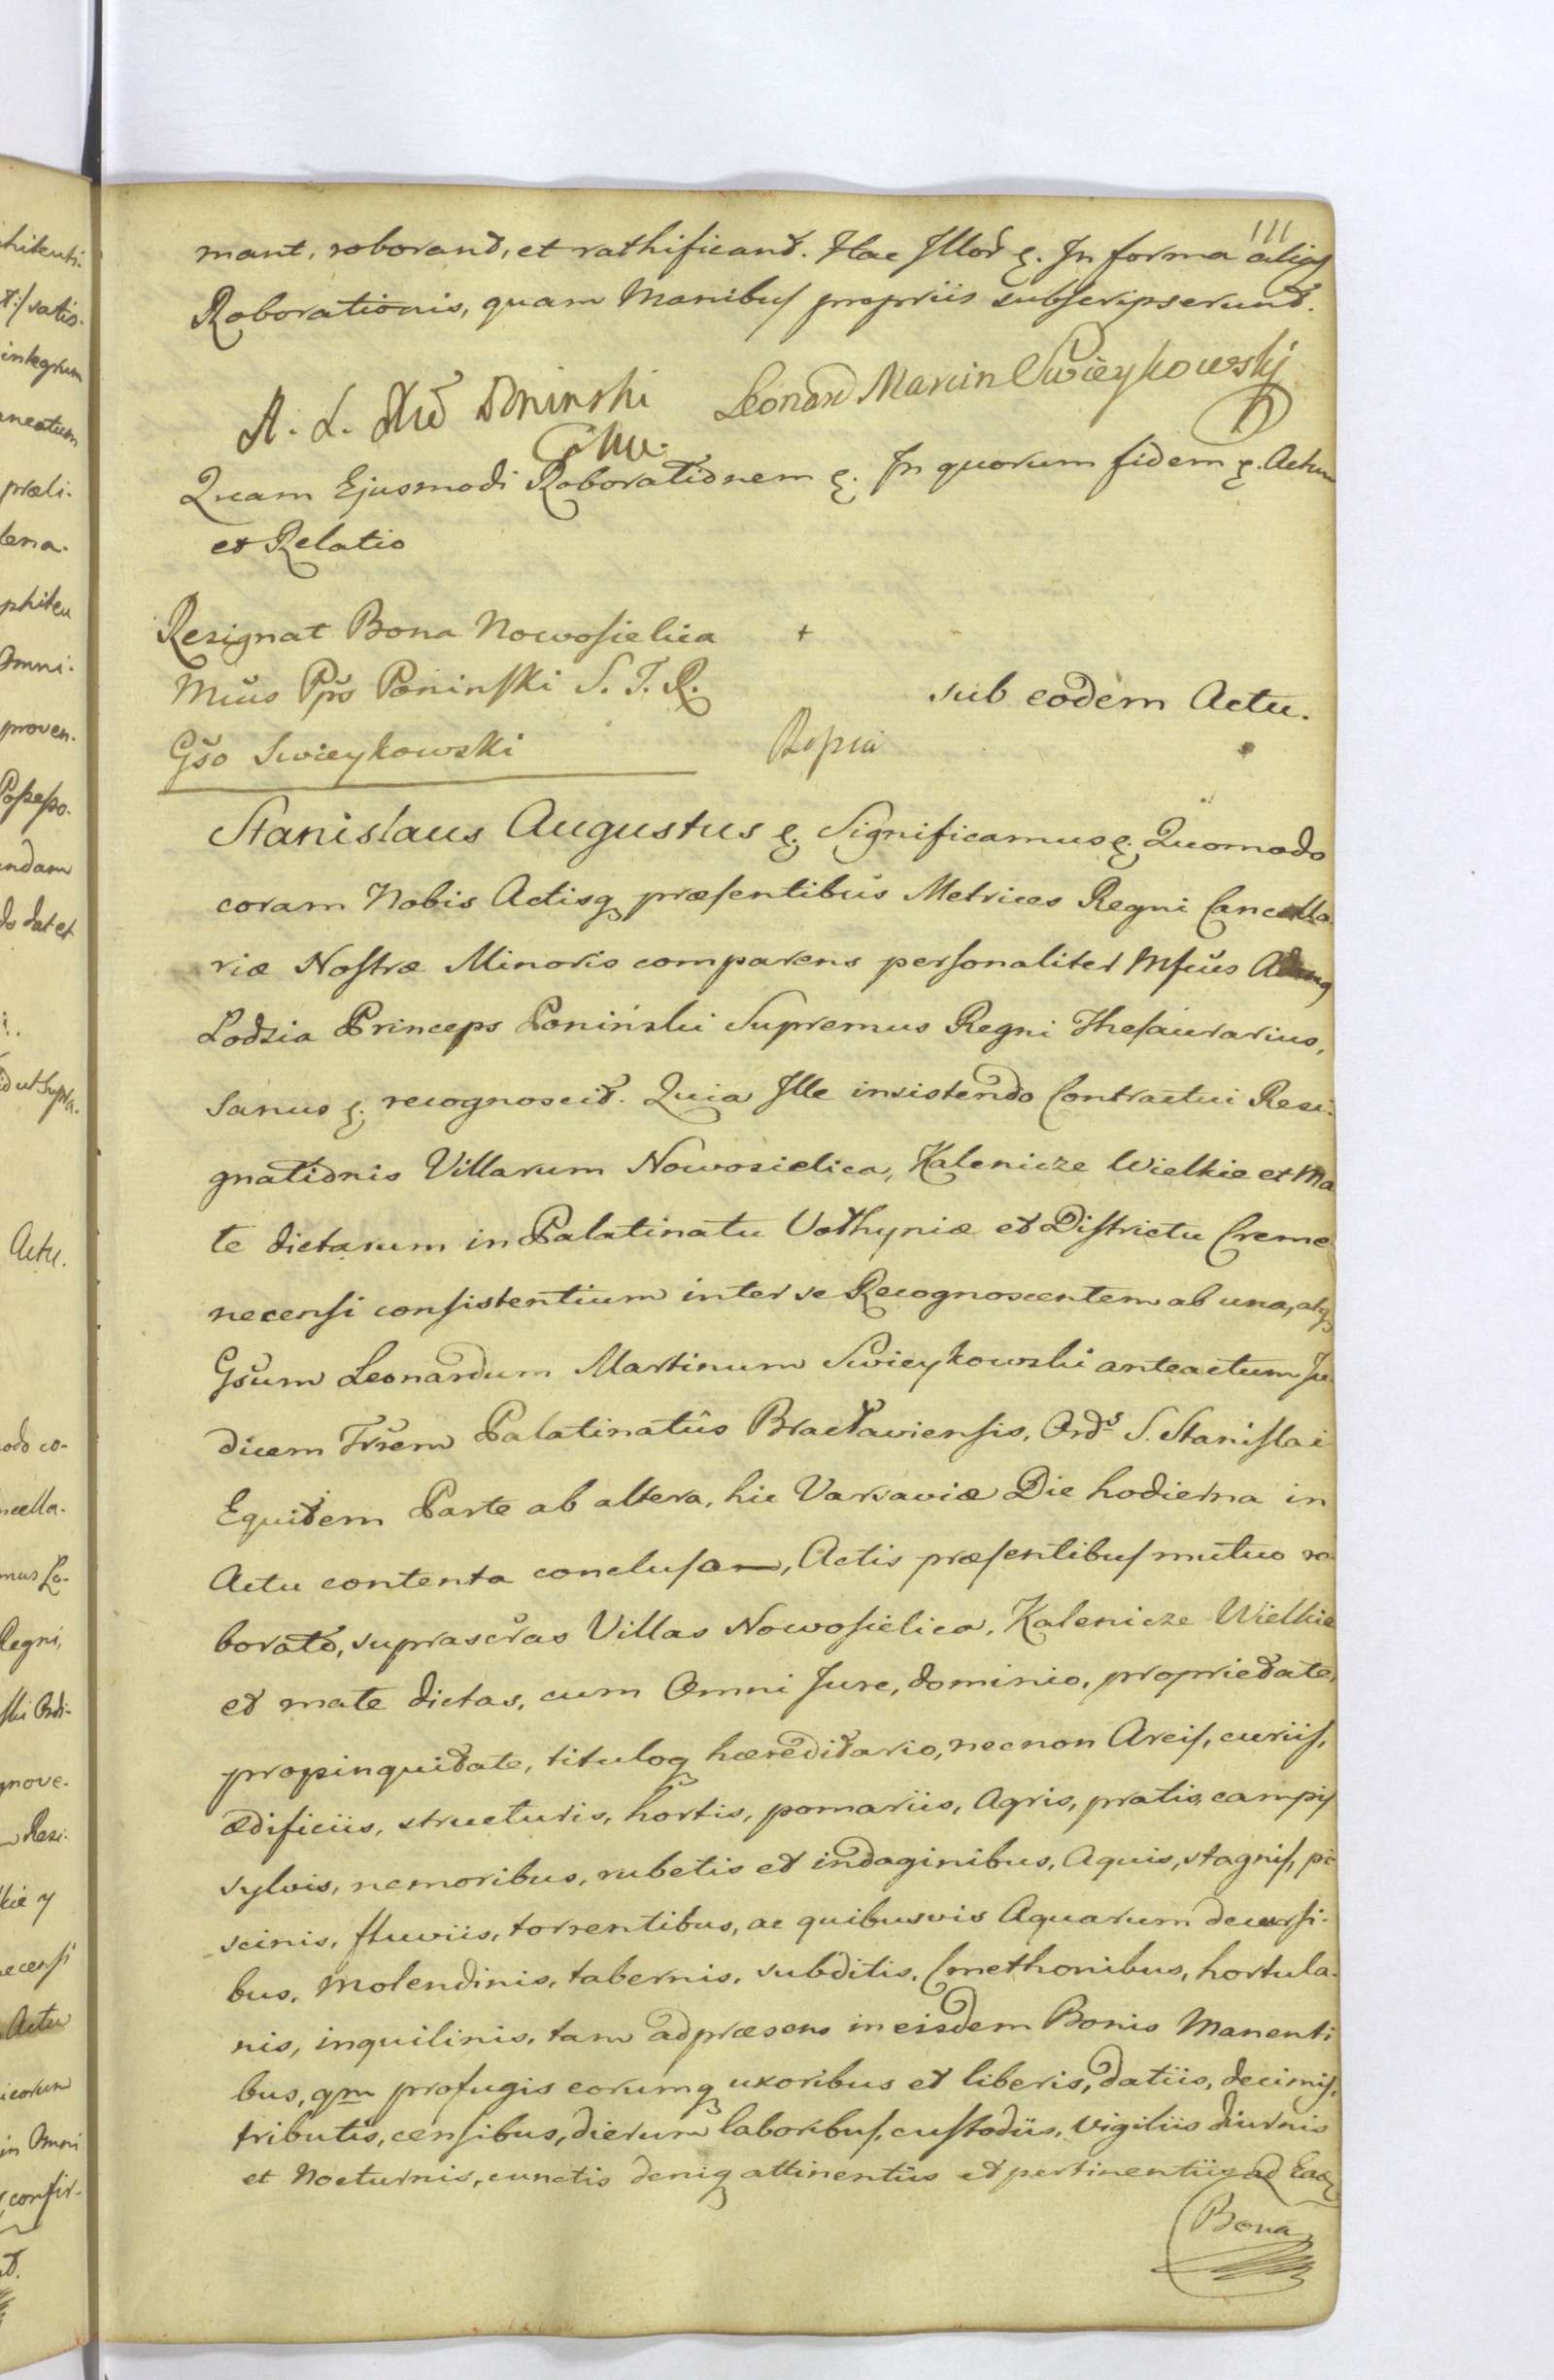 111
mant, roborant, et rathificant. Hac Illor &. In forma alias
Roborationis, quam Manibus propriis subscripserunt.
A. L. Xże Poninski Leonard Marcin Swieykowski
Quam Ejusmodi Roborationem &. In quorum fidem &. Actum
et Relatio
Resignat Bona Nowosielica +
Mcus Pps Poninski S. T. R.
sub eodem Actu.
Gso Swieykowski Kopia
Stanislaus Augustus &. Significamus &. Quomodo
coram Nobis Actisq præsentibus Metrices Regni Cancella-
riæ Nostræ Minoris comparens personaliter Mfcus Adamq
Lodzia Princeps Poniński Supremus Regni Thesaurarius,
Sanus &. recognoscit. Quia Ille insistendo Contractui Resi-
gnationis Villarum Nowosielica, Kalenicze Wielkie et Ma
te dictarum in Palatinatu Volhyniæ et Districtu Creme
necensi consistentium inter se Recognoscentem ab una, atq
Gsum Leonardum Martinum Swieykowski anteactum Ju
dicem Trrem Palatinatûs Bracłaviensis, Ords S. Stanislai
Equitem Parte ab altera, hic Varsaviæ Die hodierna in
Actu contenta conclusa—, Actis præsentibus mutuo ro-
borato, suprascras Villas Nowosielica, Kalenicze Wielkie
et mate dictas, cum Omni Jure, dominio, proprietate,
propinquitate, tituloq hæreditario, necnon Areis, curiis,
ædificiis, structuris, hortis, pomariis, Agris, pratis, campis
sylvis, nemoribus, rubetis et indaginibus, Aquis, stagnis, pi
scinis, fluviis, torrentibus, ac quibusvis Aquarum decursi-
bus, Molendinis, tabernis, subditis, Cmethonibus, hortula-
nis, inquilinis, tam ad præsens in eisdem Bonis Manenti
bus, qm profugis eorumq uxoribus et liberis, datiis, decimis,
tributis, censibus, dierum laboribus, custodiis, vigiliis diurnis
et Nocturnis, cunctis deniq attinentiis et pertinentiis ad Ead
Bona